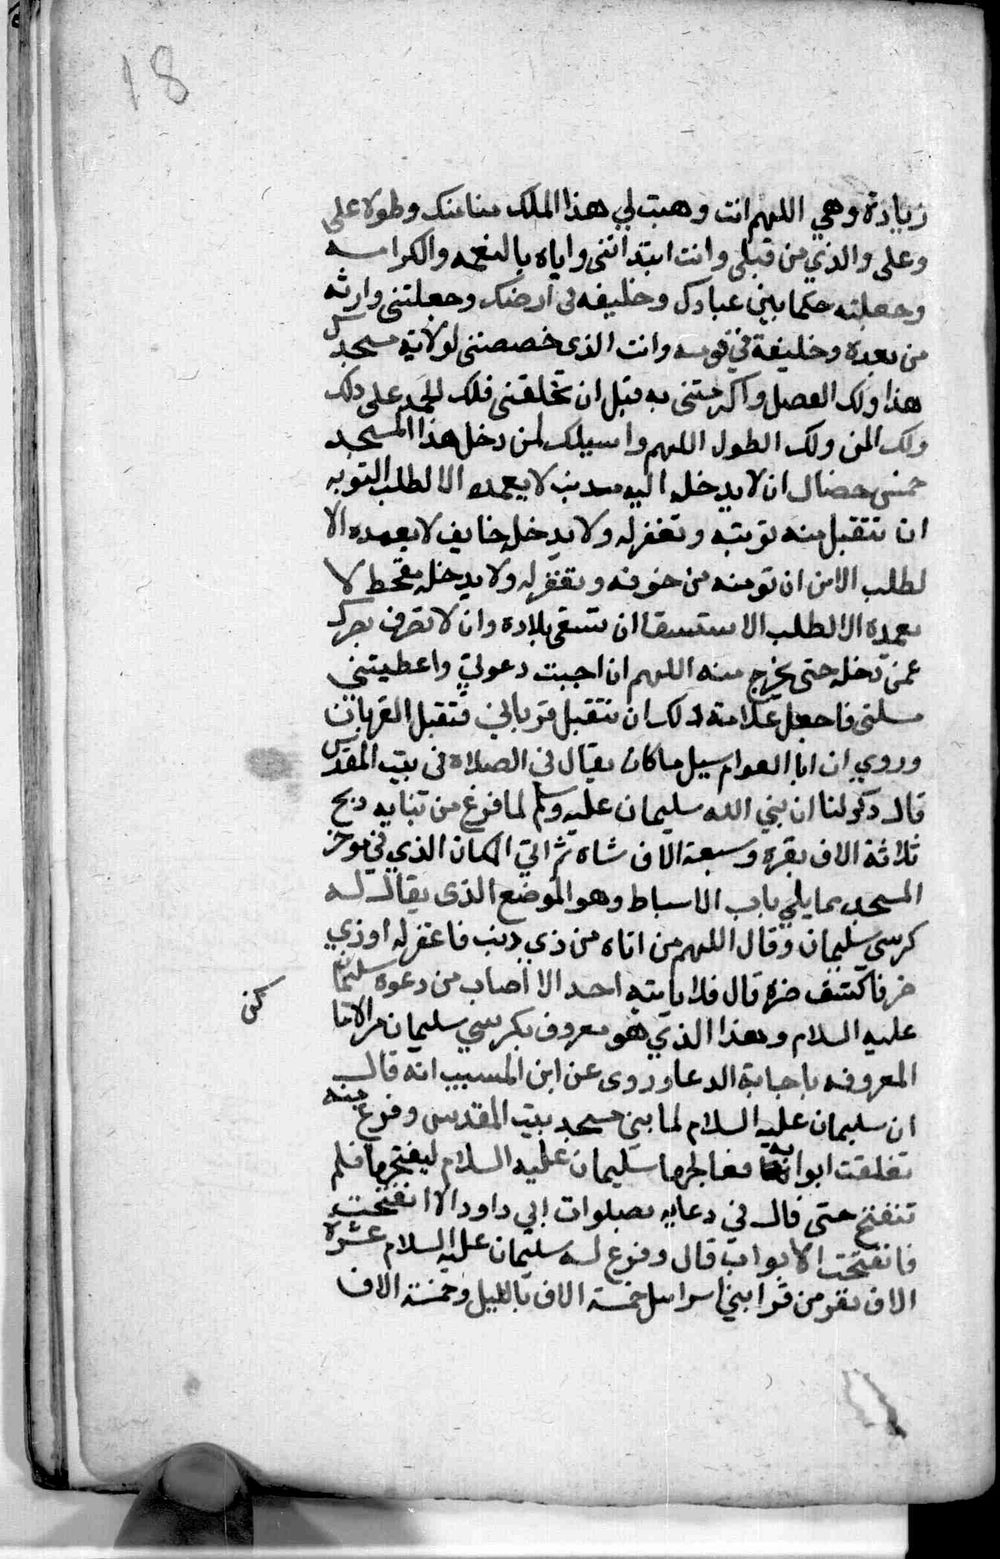 18
زيادة وهي اللهم انت وهبت لي هذا الملك منا منك وطولا علي
وعلي والدي من قبلي وانت ابتداتني واياه بالنعمه والكرامه
وجعلته حكما بين عبادك وخليفه في ارضك وجعلتني وارثه
من بعده وخليفة في قومه وانت الذي خصصتني لولاية مسجدك
هذا ولك الفضل واكرمتني به قبل ان تخلقني فلك الحمد علي ذلك
ولك المن ولك الطول اللهم واسيلك لمن دخل هذا المسجد
خمس خصال ان لا يدخل اليه مذنب لا يعمده الا لطلب التوبه
ان تتقبل منه توبته وتغفر له ولا يدخله خايف لا يعمده الا
لطلب الامن ان تومنه من خوفه وتغفر له ولا يدخله مقحط لا
يعمده الا لطلب الاستسقا ان تسقي بلاده وان لا تصرف بصرك
عمن دخله حتى يخرج منه اللهم ان اجبت دعوتي واعطيتني
مسلتي فاجعل علامة ذلك ان تتقبل قرباني فتقبل القربان
وروي ان ابا العوام سيل ما كان يقال في الصلاة في بيت المقدس
قال ذكر لنا ان نبي الله سليمان عليه وسلم لما فرغ من بنايه ذبح
ثلاثة الاف بقره وسبعة الاف شاه ثم اتي المكان الذي في موخر
المسجد مما يلي باب الاسباط وهو الموضع الذي يقال له
كرسي سليمان وقال اللهم من اتاه من ذي ذنب فاغفر له او ذي
ضر فاكشف ضره قال فلا ياتيه احد الا اصاب من دعوه سليمان
عليه السلام وهذا الذي هو معروف بكرسي سليمان من الاماكن
المعروفه باجابة الدعا وروي عن ابن المسيب انه قال
ان سليمان عليه السلام لما بني مسجد بيت المقدس وفرغ منه
تغلقت ابوابه فعالجها سليمان عليه السلام ليفتحها فلم
تنفتح حتى قال في دعايه بصلوات ابي داود الا انفتحت
فانفتحت الابواب قال وفرغ له سليمان عليه السلام عشرة
الاف نفر من قرا بني اسرايل خمسة الاف بالليل وخمسة الاف